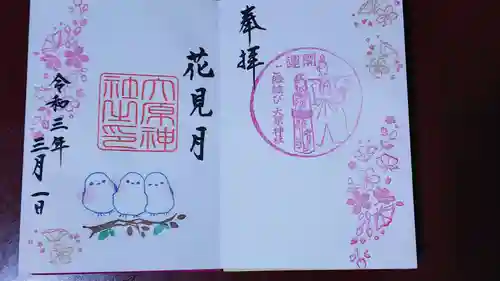 奉拝
開運
縁結び 大原神社
花見月
大原神社之印
令和三年
三月一日